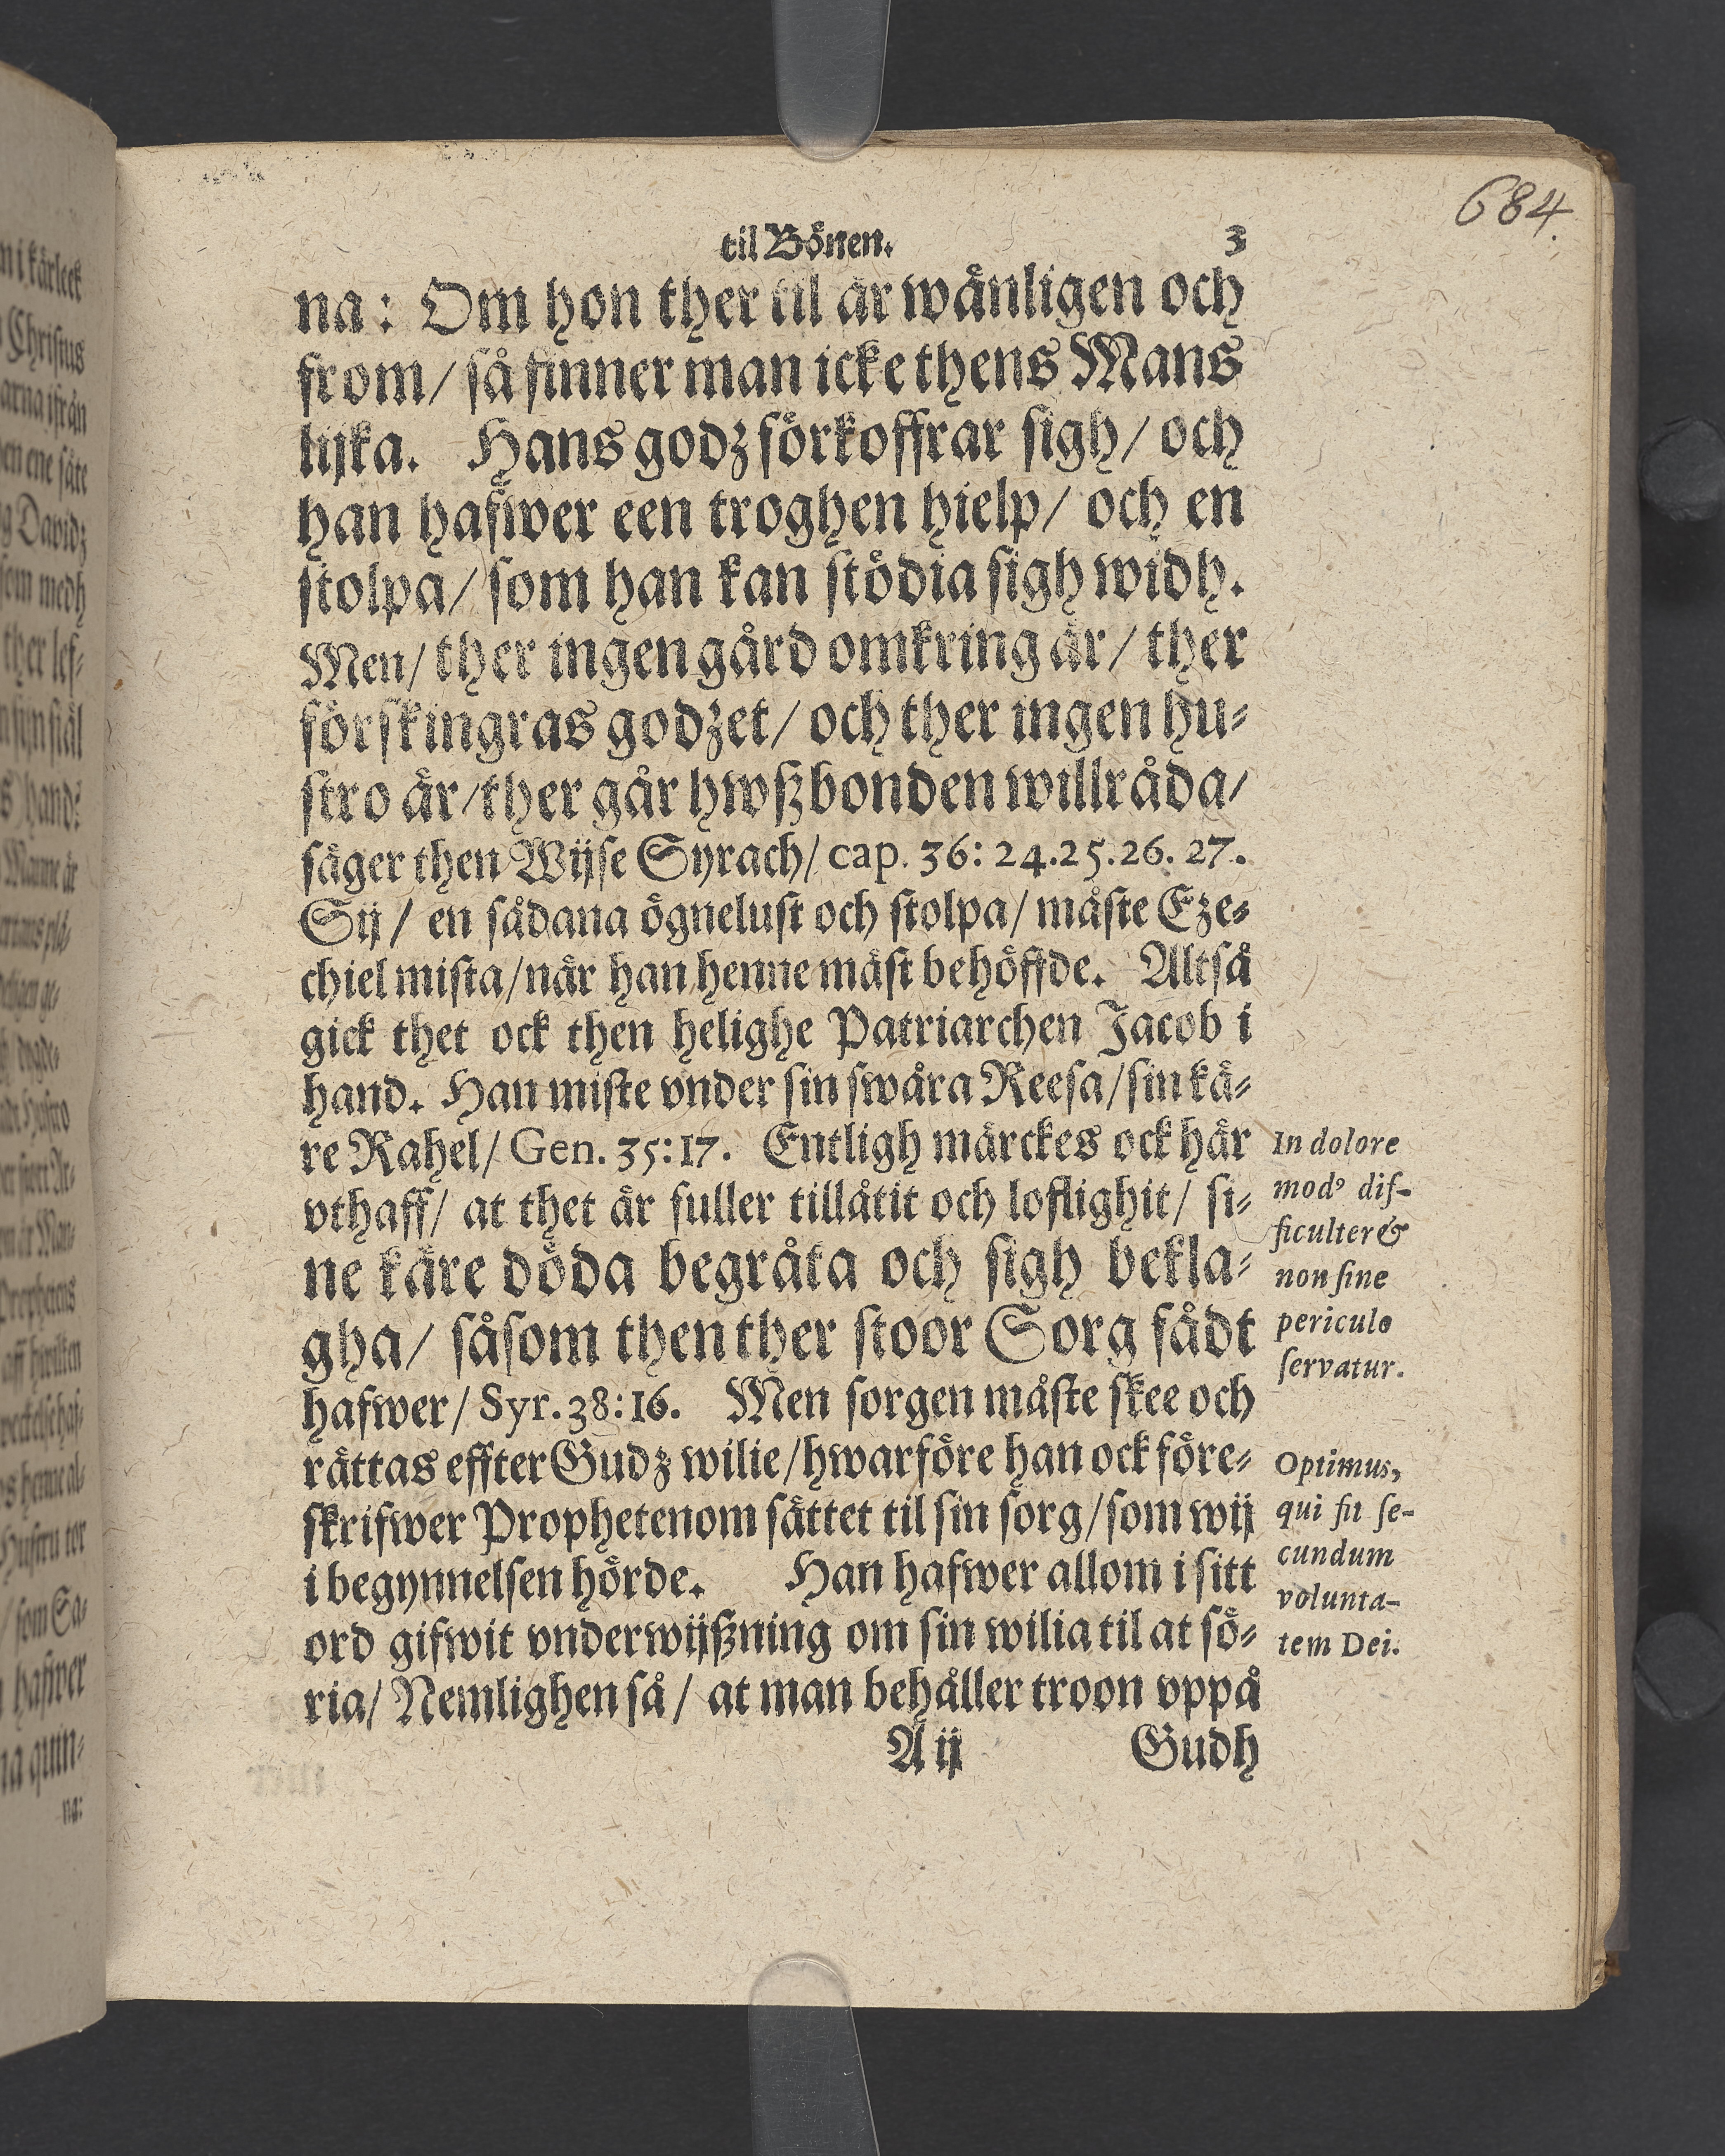 684.
til Bönen. 3
na: Om hon ther til är wänligen och
from/ så finner man icke thens Mans
lijka. Hans godz förkoffrar sigh/ och
han hafwer een troghen hielp/ och en
stolpa/ som han kan stödia sigh widh.
Men/ ther ingen gård omkring är/ ther
förskingras godzet/ och ther ingen hu-
stro är/ ther går hwßbonden willråda/
säger then Wijse Syrach/ cap. 36: 24.25.26. 27.
Sij/ en sådana ögnelust och stolpa/ måste Eze-
chiel mista/ när han henne mäst behöffde. Altså
gick thet ock then helighe Patriarchen Jacob i
hand. Han miste vnder sin swåra Reesa/ sin kä-
re Rahel/ Gen. 35:17. Entligh märckes ock här
vthaff/ at thet är fuller tillåtit och loflighit/ si-
ne käre döda begråta och sigh bekla-
gha/ såsom then ther stoor Sorg fådt
hafwer/ Syr. 38:16. Men sorgen måste skee och
rättas effter Gudz wilie/ hwarföre han ock före-
skrifwer Prophetenom sättet til sin sorg/ som wij
i begynnelsen hörde. Han hafwer allom i sitt
ord gifwit vnderwijßning om sin wilia til at sö-
ria/ Nemlighen så/ at man behåller troon vppå
A ij Gudh
In dolore
modꝰ dif-
ficulter &
non sine
periculo
servatur.
Optimus,
qui fit se-
cundum
volunta-
tem Dei.